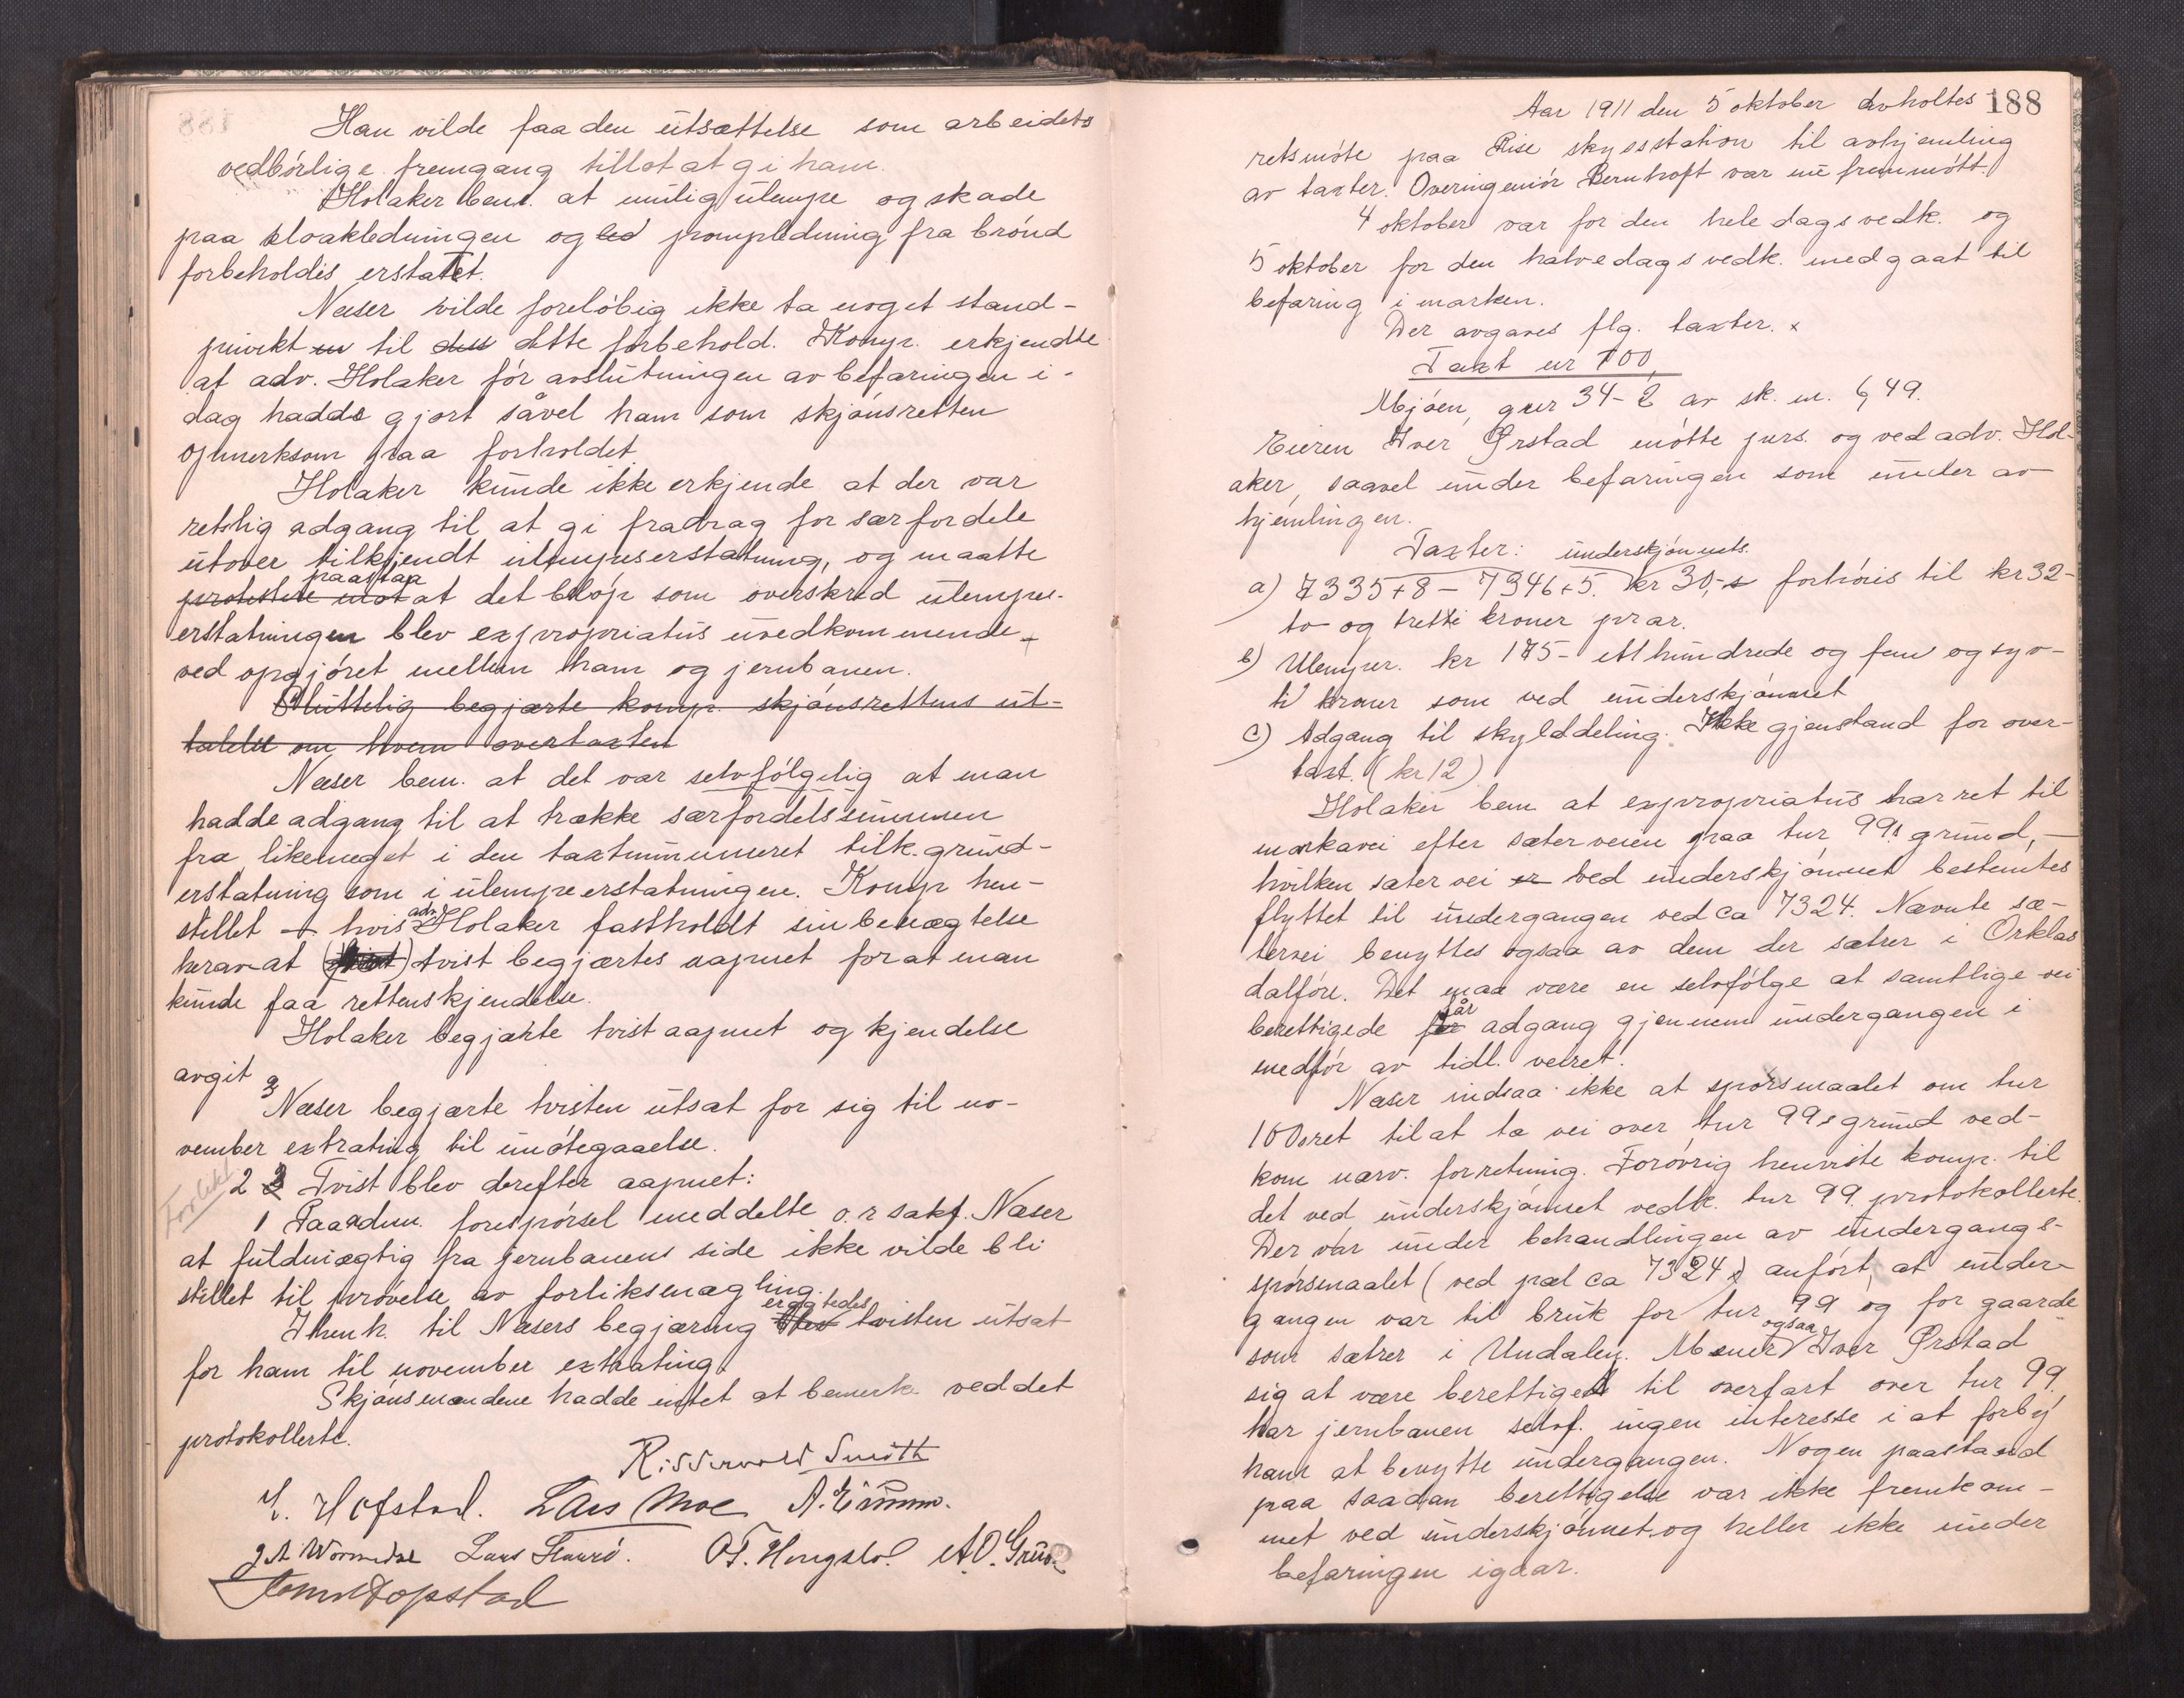 Han vilde faa den utsættelse som arbeidets
vedbörlige fremgang tillot at gi ham.
Holaker bem. at mulig ulempe og skade
paa kloakledningen og led pompledning fra brönd
forbeholdes erstattet.
Næser vilde forelöbig ikke ta noget stand-
punkt til dette forbehold. Komp. erkjendte
at adv. Holaker för avslutningen av befaringen i-
dag hadde gjort såvel ham som skjönsretten
opmerksom paa forholdet
Holaker kunde ikke erkjende at der var
retslig adgang til at gi fradrag for særfordele
utover tilkjendt ulempeserstatning, og maatte
protestere mot paastaa at det belöp som overskred ulempes-
erstatningen blev expropriatus uvedkommende
ved opgjöret mellem ham og jernbanen.
Sluttelig begjærte komp. skjönsrettens ut-
talelse om hvem overtaxten
Næser bem. at det var selvfölgelig at man
hadde adgang til at trække særfordelssummen
fra likemeget i den taxtnummeret tilk. grund-
erstatning som i ulempeerstatningen. Komp hen-
stillet hvis adv. Holaker fastholdt sin benægtelse
herav at tvist begjærtes aapnet for at man
kunde faa rettens kjendelse.
Holaker begjærte tvist aapnet og kjendelse
avgit
Næser begjærte tvisten utsat for sig til no-
vember extrating til imötegaaelse.
Forlik
2 Tvist blev derefter aapnet:
1 Paa dem. forespörsel meddelte o. r sakf. Næser
at fuldmægtig fra jernbanens side ikke vilde bli
stillet til prövelse av forliksmægling.
I henh. til Næsers begjæring blev eragtedes tvisten utsat
for ham til november extrating.
Skjönsmændene hadde intet at bemerke ved det
protokollerte.
Smith
Hofstad. Lars Moe
Lars O. T. Hengstol.
188
Aar 1911 den 5 oktober avholtes
retsmöte paa Rise skysstation til avhjemling
av taxter. Overingeniör Bernhoft var ei fremmött.
4 oktober var for den hele dags vedk. og
5 oktober for den halve dags vedk. medgaat til
befaring i marken.
Der avgaves flg. taxter. x
Taxt nr 100
Mjöen, gnr 34-2 av sk. m. 6,49.
Eieren Iver Ørstad mötte pers. og ved adv. Hol-
aker, saavel under befaringen som under av
hjemlingen.
Taxter: underskjönnets.
a) 7335+8 - 7346+5. kr 30,- forhöies til kr 32-
to- og tretti kroner pr ar.
b) Ulemper. kr 175- etthundrede og fem og syv-
ti kroner som ved underskjönnet
c) Adgang til skylddeling. Ikke gjenstand for over-
taxt. (kr 12)
Holaker bem at expropriatus har ret til
markavei efter sæterveien paa tur 99s grund, -
hvilken sætervei er ved underskjönnet bestemtes
flyttet til undergangen ved ca 7324. Nævnte sæ-
tervei benyttes ogsaa av dem der sætrer i Orklas
dalföre. Det maa være en selvfölge at samtlige vei
berettigede får adgang gjennem undergangen i
medför av tidl. veiret.
Næser indsaa ikke at spörsmaalet om tur
100s ret til at ta vei over tur 99s grund ved-
kom nærv. forretning. Forövrig henviste komp. til
det ved underskjönnet vedk. tur 99 protokollerte.
Der var under behandlingen av undergangs-
spörsmaalet (ved pæl ca 7324) anfört, at under-
gangen var til bruk for tur 99 og for gaarde
som sætrer i Undalen. Mener ogsaa Iver Ørstad
sig at være berettiget til overfart over tur 99
har jernbanen selvf. ingen interesse i at forby
ham at benytte undergangen. Nogen paastand
paa saadan berettigelse var ikke fremkom-
met ved underskjönnet og heller ikke under
befaringen igaar.